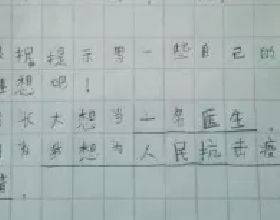 据提示写一些自己的
想吧！
长大想当一名医生，
为我想为人民抗击疫
情。